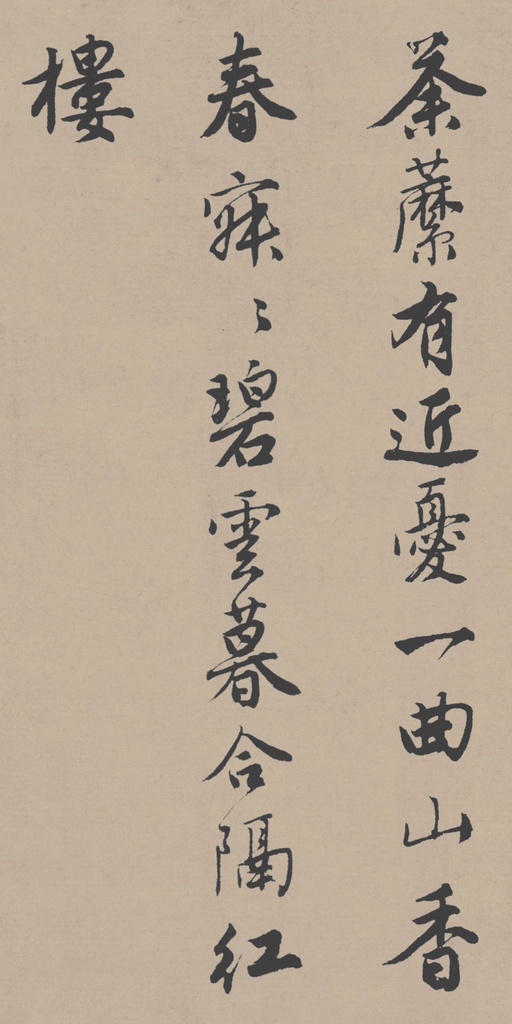 荼䕷有近憂一曲山香
春寂〻碧雲暮合隔紅
樓